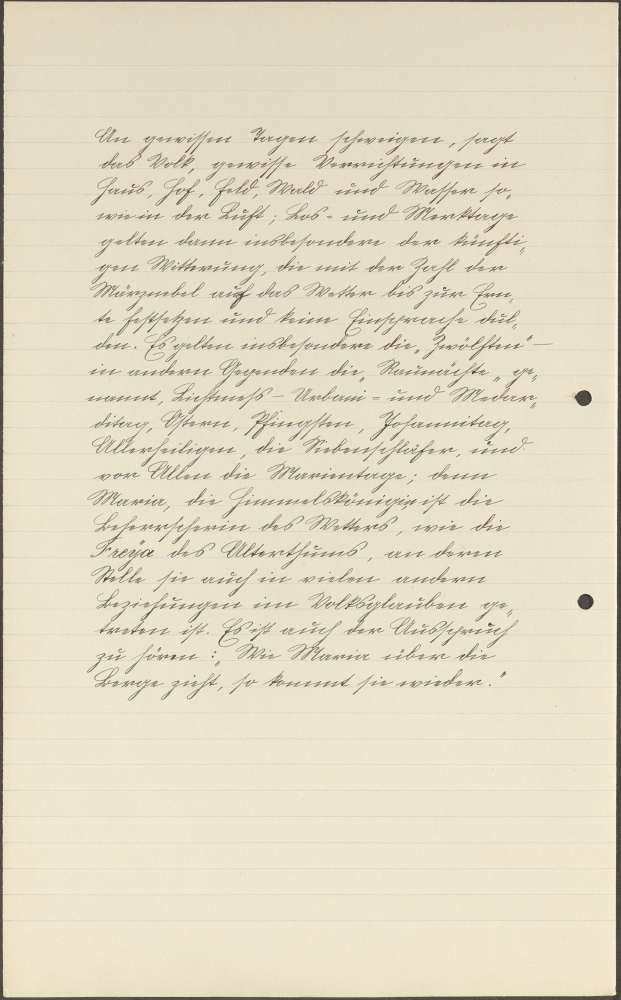 An gewissen Tagen schweigen, sagt
das Volk, gewisse Verrichtungen in
Haus, Hof, Feld, Wald und Wasser so„
wie in der Luft; Los- und Merktage
gelten dann insbesondere der künfti„
gen Witterung, die mit der Zahl der
Märznebel auf das Wetter bis zur Ern„
te festsetzen und keine Einsprache dul„
den. Es gelten insbesondere die „Zwölften" —
in andern Gegenden die „Raunächte„ ge„
nannt, Lichtmeß- Urbani- und Medar„
ditag, Ostern, Pfingsten, Johannitag,
Allerheiligen, die Siebenschläfer, und
vor Allen die Marientage; denn
Maria, die Himmelskönigin ist die
Beherrscherin des Wetters, wie die
Freÿa des Alterthums, an deren
Stelle sie auch in vielen andern
Beziehungen im Volksglauben ge„
treten ist. Es ist auch der Ausspruch
zu hören: „Wie Maria über die
Berge zieht, so kommt sie wieder."